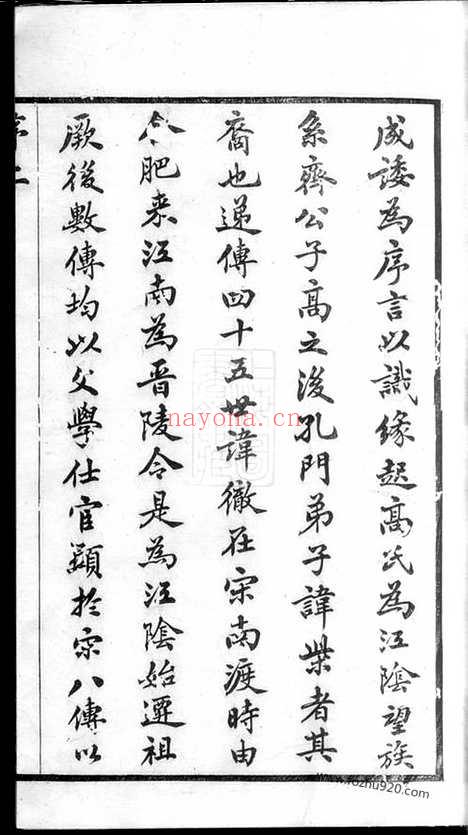 成諉為序言以識緣起高氏為江陰望族
系齊公子高之後孔門弟子諱柴者其
裔也遞傳四十五世諱徹在宋南渡時由
合肥来江南為晋陵令是為江陰始遷祖
厥後數傳均以文學仕宦顯於宋八傳以
序二
nayona.cn
www.fozhu920.com